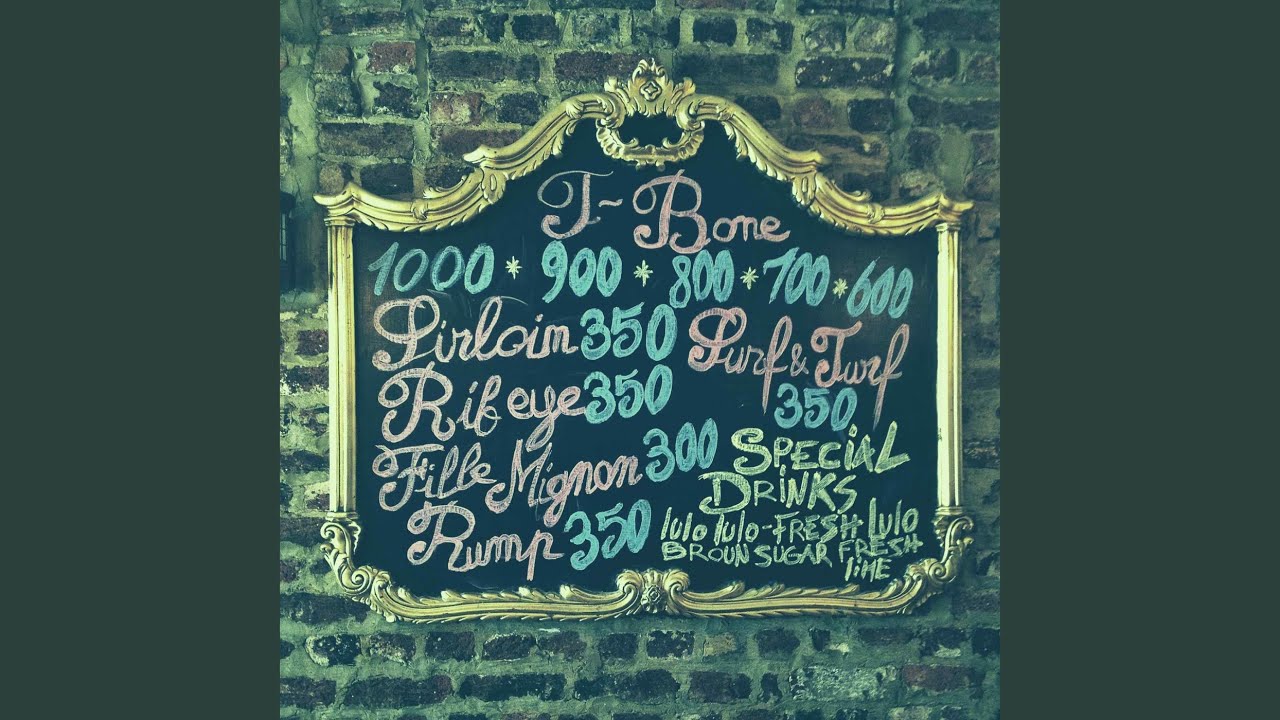 T-Bone
1000 * 900 * 800 * 700 * 600
Sirloin 350
Rib eye 350
Fille Mignon 300
Rump 350
Surf & Turf
350
SPECiAL
DRiNKS
lulo lulo-FRESH LUlO
BROUN SUGAR FRESH
liME